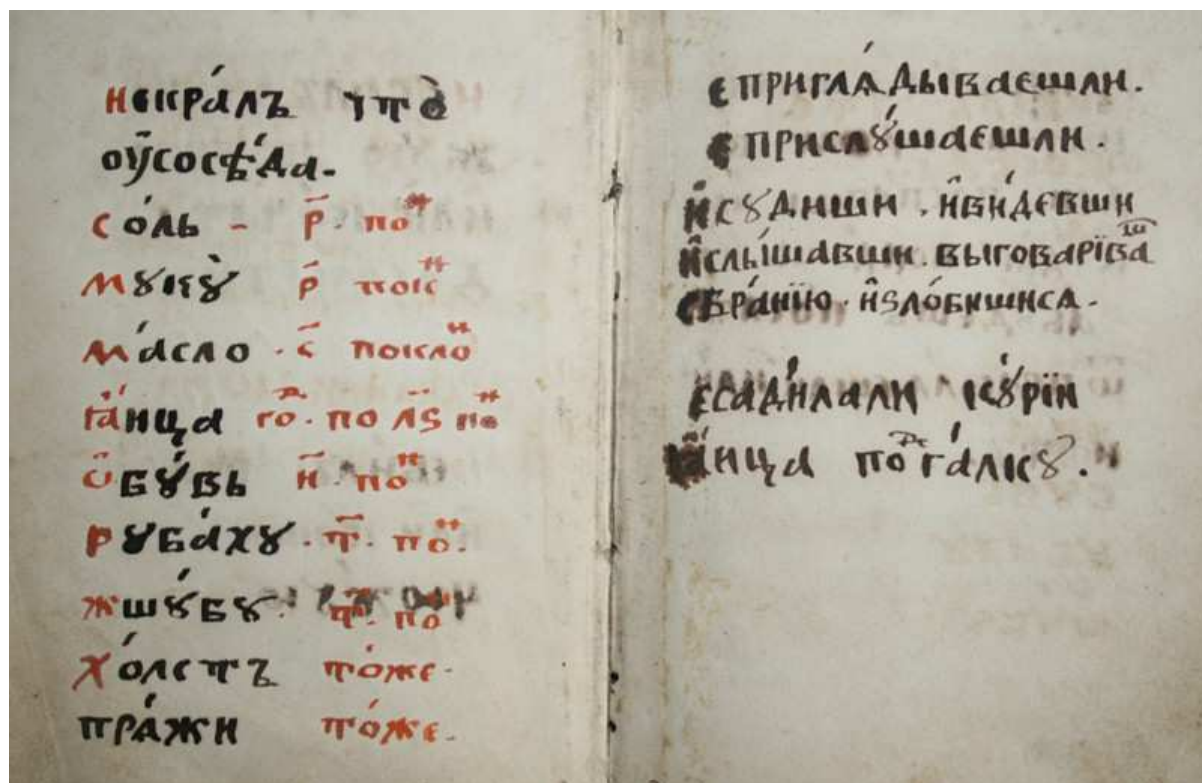 некра́лъ что̀
оу҆сосѣ́да.
со́ль - р҃. поⷩ
мꙋкꙋ̀ р҃ покⷩ
ма́сло. с҃ поклоⷩ
ꙗ҆́ица го́ⷣ. по лѕ҃ поⷩ
ѻ҆бꙋ́вь н҃. поⷩ
рꙋба́хꙋ. т҃. поⷩ.
жшꙋ́бꙋ. т҃. поⷩ
хо́лстъ то́же.
пра́жи то́же.
є пригла́ѧдываєшли.
є прислꙋ́шаєшли.
и҆сꙋдиши. и҆ви́дєвши
и҆слы́шавши. выговарїваⷲ
сбра́нїю. и҆ѕло́бишисѧ.
єсади́лали кꙋ́рїи
ꙗ҆́ица поⷣ га́лкꙋ.